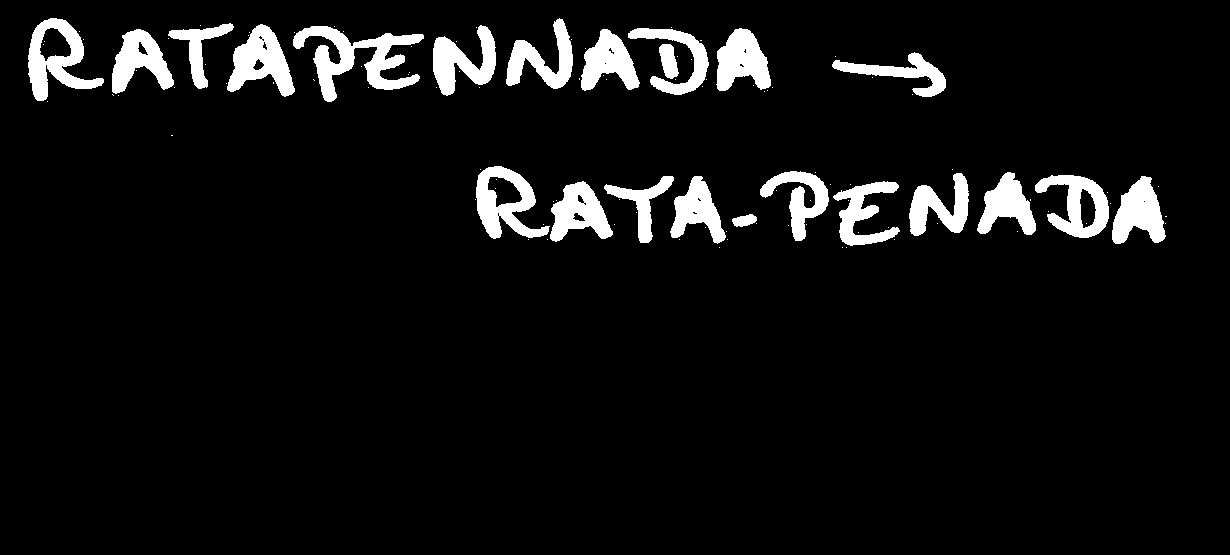 RATAPENNADA →
RATA-PENADA